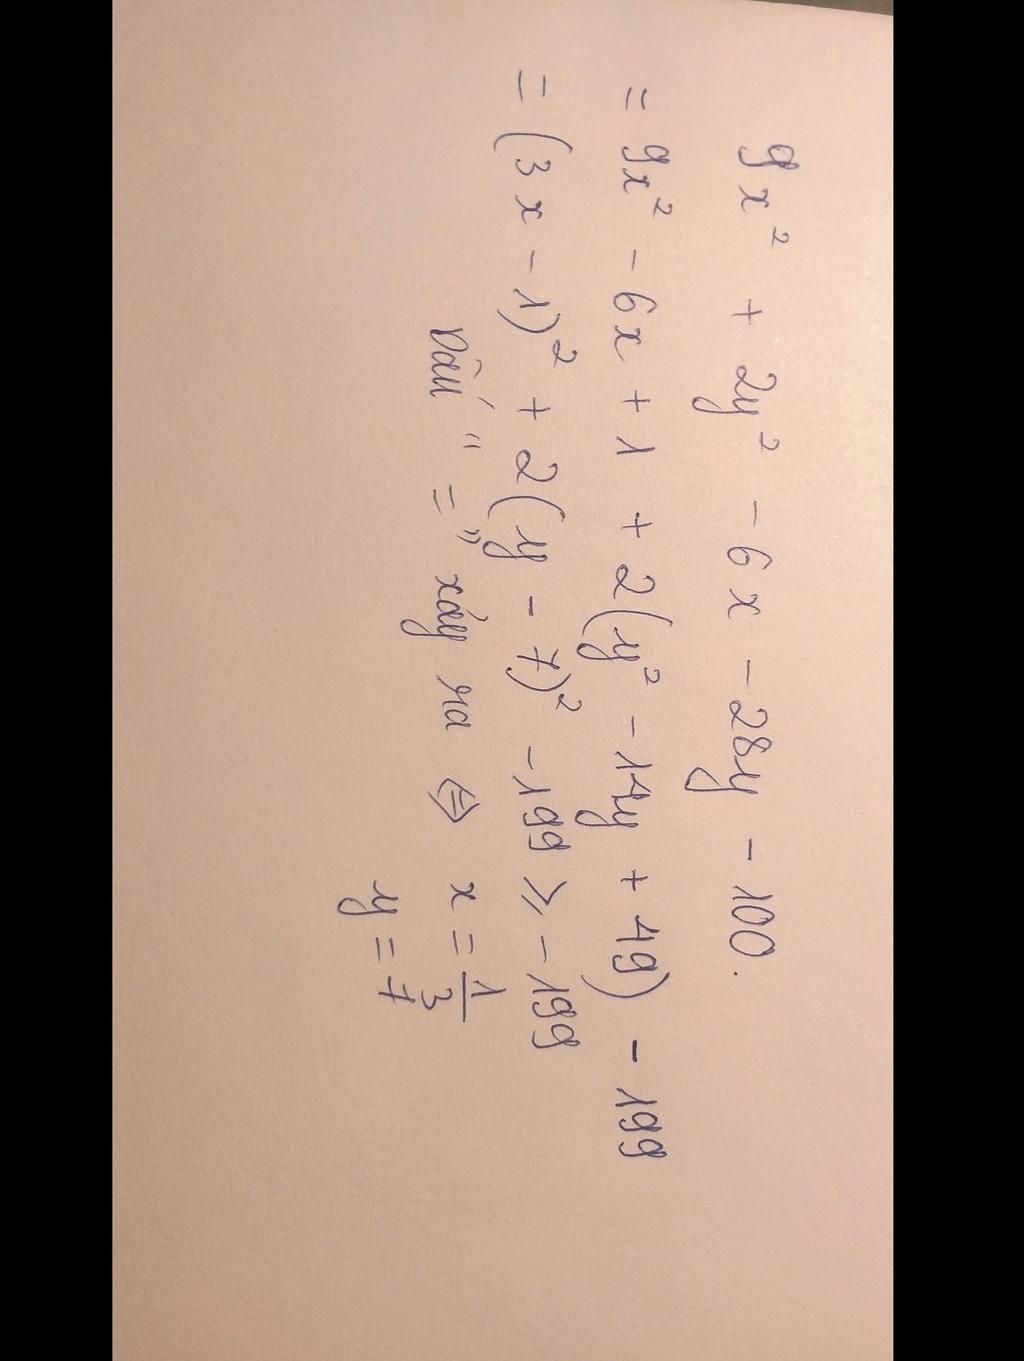 9x² + 2y² - 6x - 28y - 100.
= 9x² - 6x + 1 + 2(y² - 14y + 49) - 199
= (3x - 1)² + 2(y - 7)² - 199 ⩾ - 199
Dấu " = " xảy ra ⇔ x = 1/3
y = 7